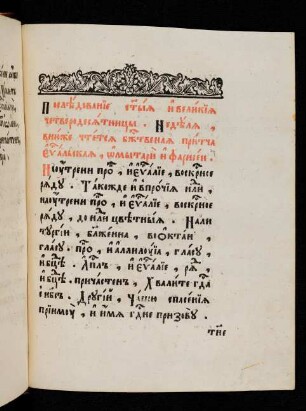 Послѣдованїе ст҃ыѧ и҆ великїѧ
четвередесѧ́тницы . Недѣ́лѧ ,
внюже чте́тсѧ бж҃твенаѧ при́тча
еѵ҃льскаѧ , ѡ҆ мытарѝ и҆ фарисе́и .
На оутрени про , и҆ еѵ҃а́лїе , воскр҃сне
рѧ́ду . Та́кожде и҆ впро́чїѧ н҃ли ,
на оутрени про , и҆ еѵ҃а́лїе , воскр҃сне
рѧ́ду , до н҃ли цвѣ́тныѧ . На ли
тꙋргїи , бл҃же́нна , во о҆кта́и ,
гла́сꙋ . про , и҆ а҆ллилꙋ́їа , гла́сꙋ ,
и҆ бц҃ѣ . А҆пл҃ъ , и҆ еѵ҃а́лїе , рѧ ,
и҆ бц҃ѣ . прича́стенъ , Хвали́те гд҃а
с нб҃съ . Дрꙋгі́й , Ча́шꙋ сп҃се́нїѧ
прїимꙋ̀ , и҆ и҆́мѧ гд҃не призовꙋ̀ .